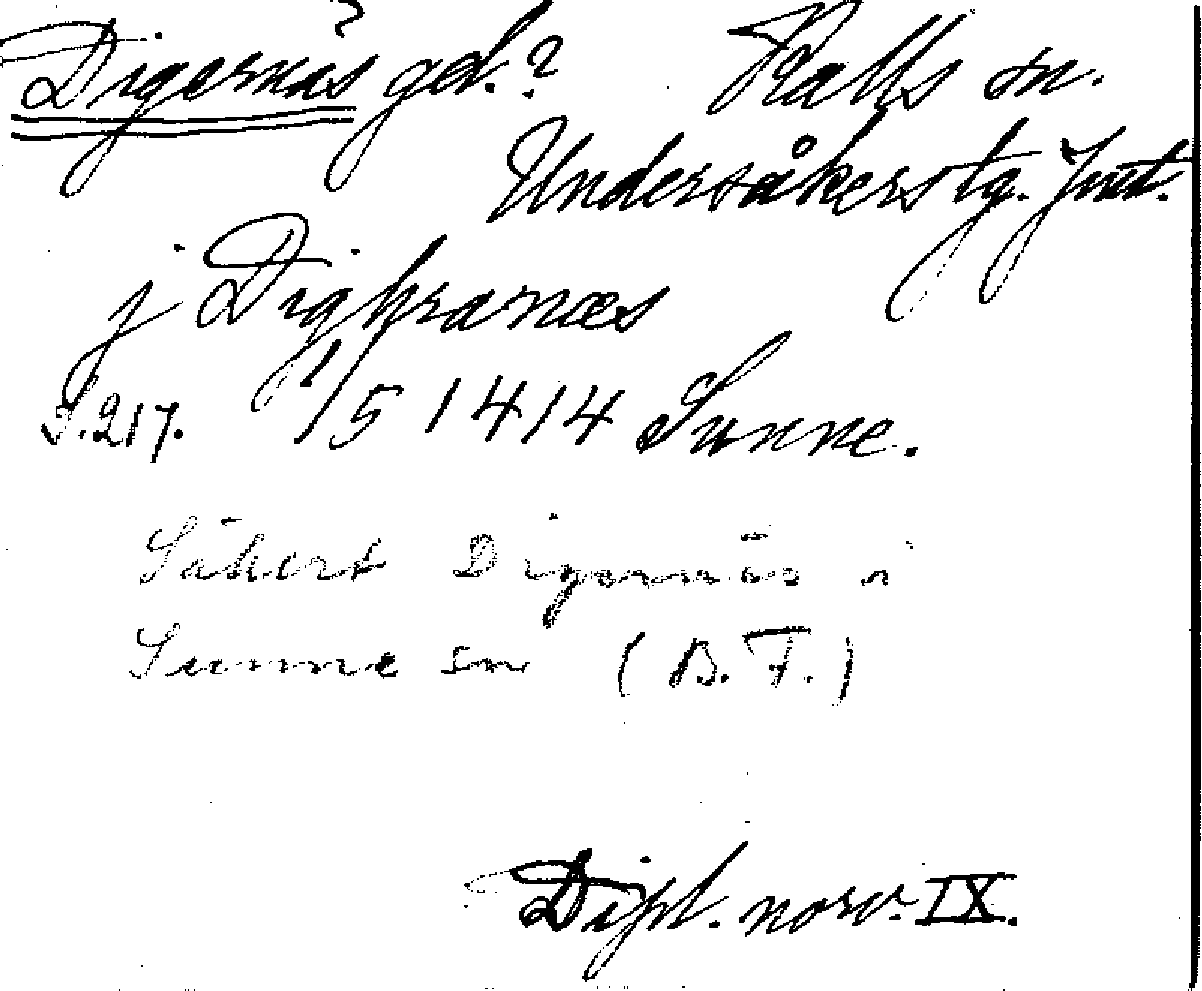 ?
Digernäs gd.? Kalls sn.
Undersåkers tg. Jmt.
j Dighranæs
S. 217. 1/5 1414 Sunne.
Säkert Digernäs i
Sunne sn (B. F.)
Dipl. norv. IX.